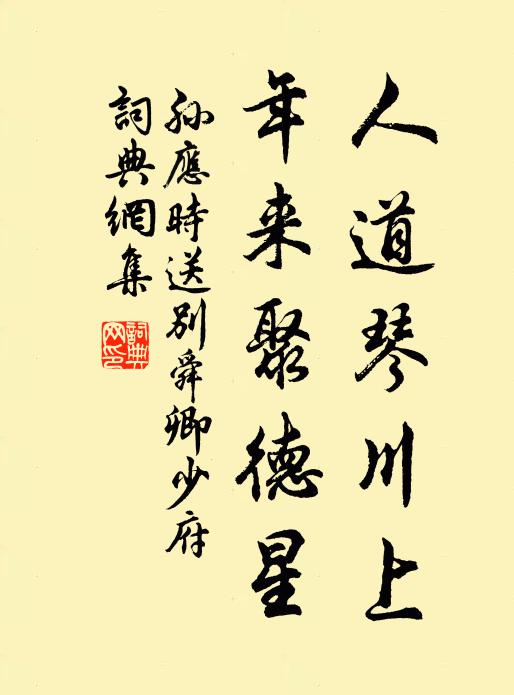 人道琴川上
年来聚德星
孙應時送别舜卿少府
詞典網集
詞典網印